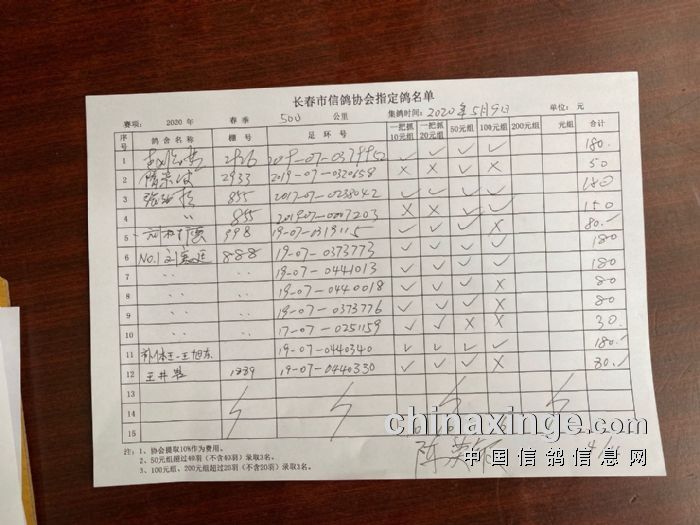 长春市信鸽协会指定鸽名单
赛项: 2020 年 春季 500 公里 集鸽时间: 2020年5月9日 单位: 元
序号 鸽舍名称 棚号 足环号 一把抓10元组 一把抓20元组 50元组 100元组 200元组 元组 合计
1 2926 2019-07-0379952 ✓ ✓ ✓ ✓ 180.
2 2933 2019-07-0320658 X X ✓ X 50
3 855 2017-07-0238042 ✓ ✓ ✓ ✓ 180
4 〃 855 201907-0007203 X X ✓ ✓ 150
5 398 19-07-0319115 ✓ ✓ ✓ X 80.
6 No.1 888 19-07-0373773 ✓ ✓ ✓ ✓ 180
7 〃 〃 19-07-0441013 ✓ ✓ ✓ ✓ 180
8 〃 〃 19-07-0440018 ✓ ✓ ✓ X 80
9 〃 〃 19-07-0373776 ✓ ✓ ✓ X 80
10 〃 〃 17-07-0251159 ✓ ✓ X X 30.
11 王旭东 19-07-0440340 ✓ ✓ ✓ ✓ 180.
12 王井 1239 19-07-0440330 ✓ ✓ ✓ X 80.
13
14
15
注: 1、协会提取10%作为费用。
2、50元组超过40羽(不含40羽)录取3名。
3、100元组、200元组超过20羽(不含20羽)录取3名。
chinaxinge.com
中国信鸽信息网